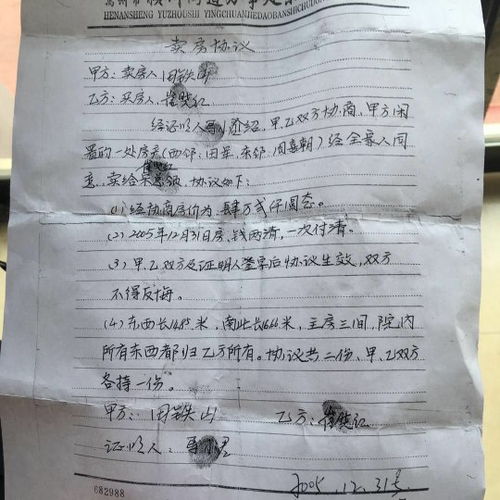 HENANSHENG YUZHOUSHI YINGCHUANJIEDAOBANSHICHU
卖房协议
甲方：卖房人 田铁山
乙方：买房人
经证明人 介绍，甲、乙双方协商，甲方闲
置的一处房产（西邻：田 东邻：周喜朝）经全家人同
意，卖给 协议如下：
(1) 经协商房价为 肆万贰仟圆
(2) 2005年12月31日房、钱两清，一次付清。
(3) 甲、乙双方及证明人签字后协议生效，双方
不得反悔。
(4) 东西长 米，南北长 米，主房三间，院内
所有东西都归乙方所有。协议共二份，甲、乙双方
各持一份。
甲方：田铁山 乙方：
证明人：
2005.12.31号
682988